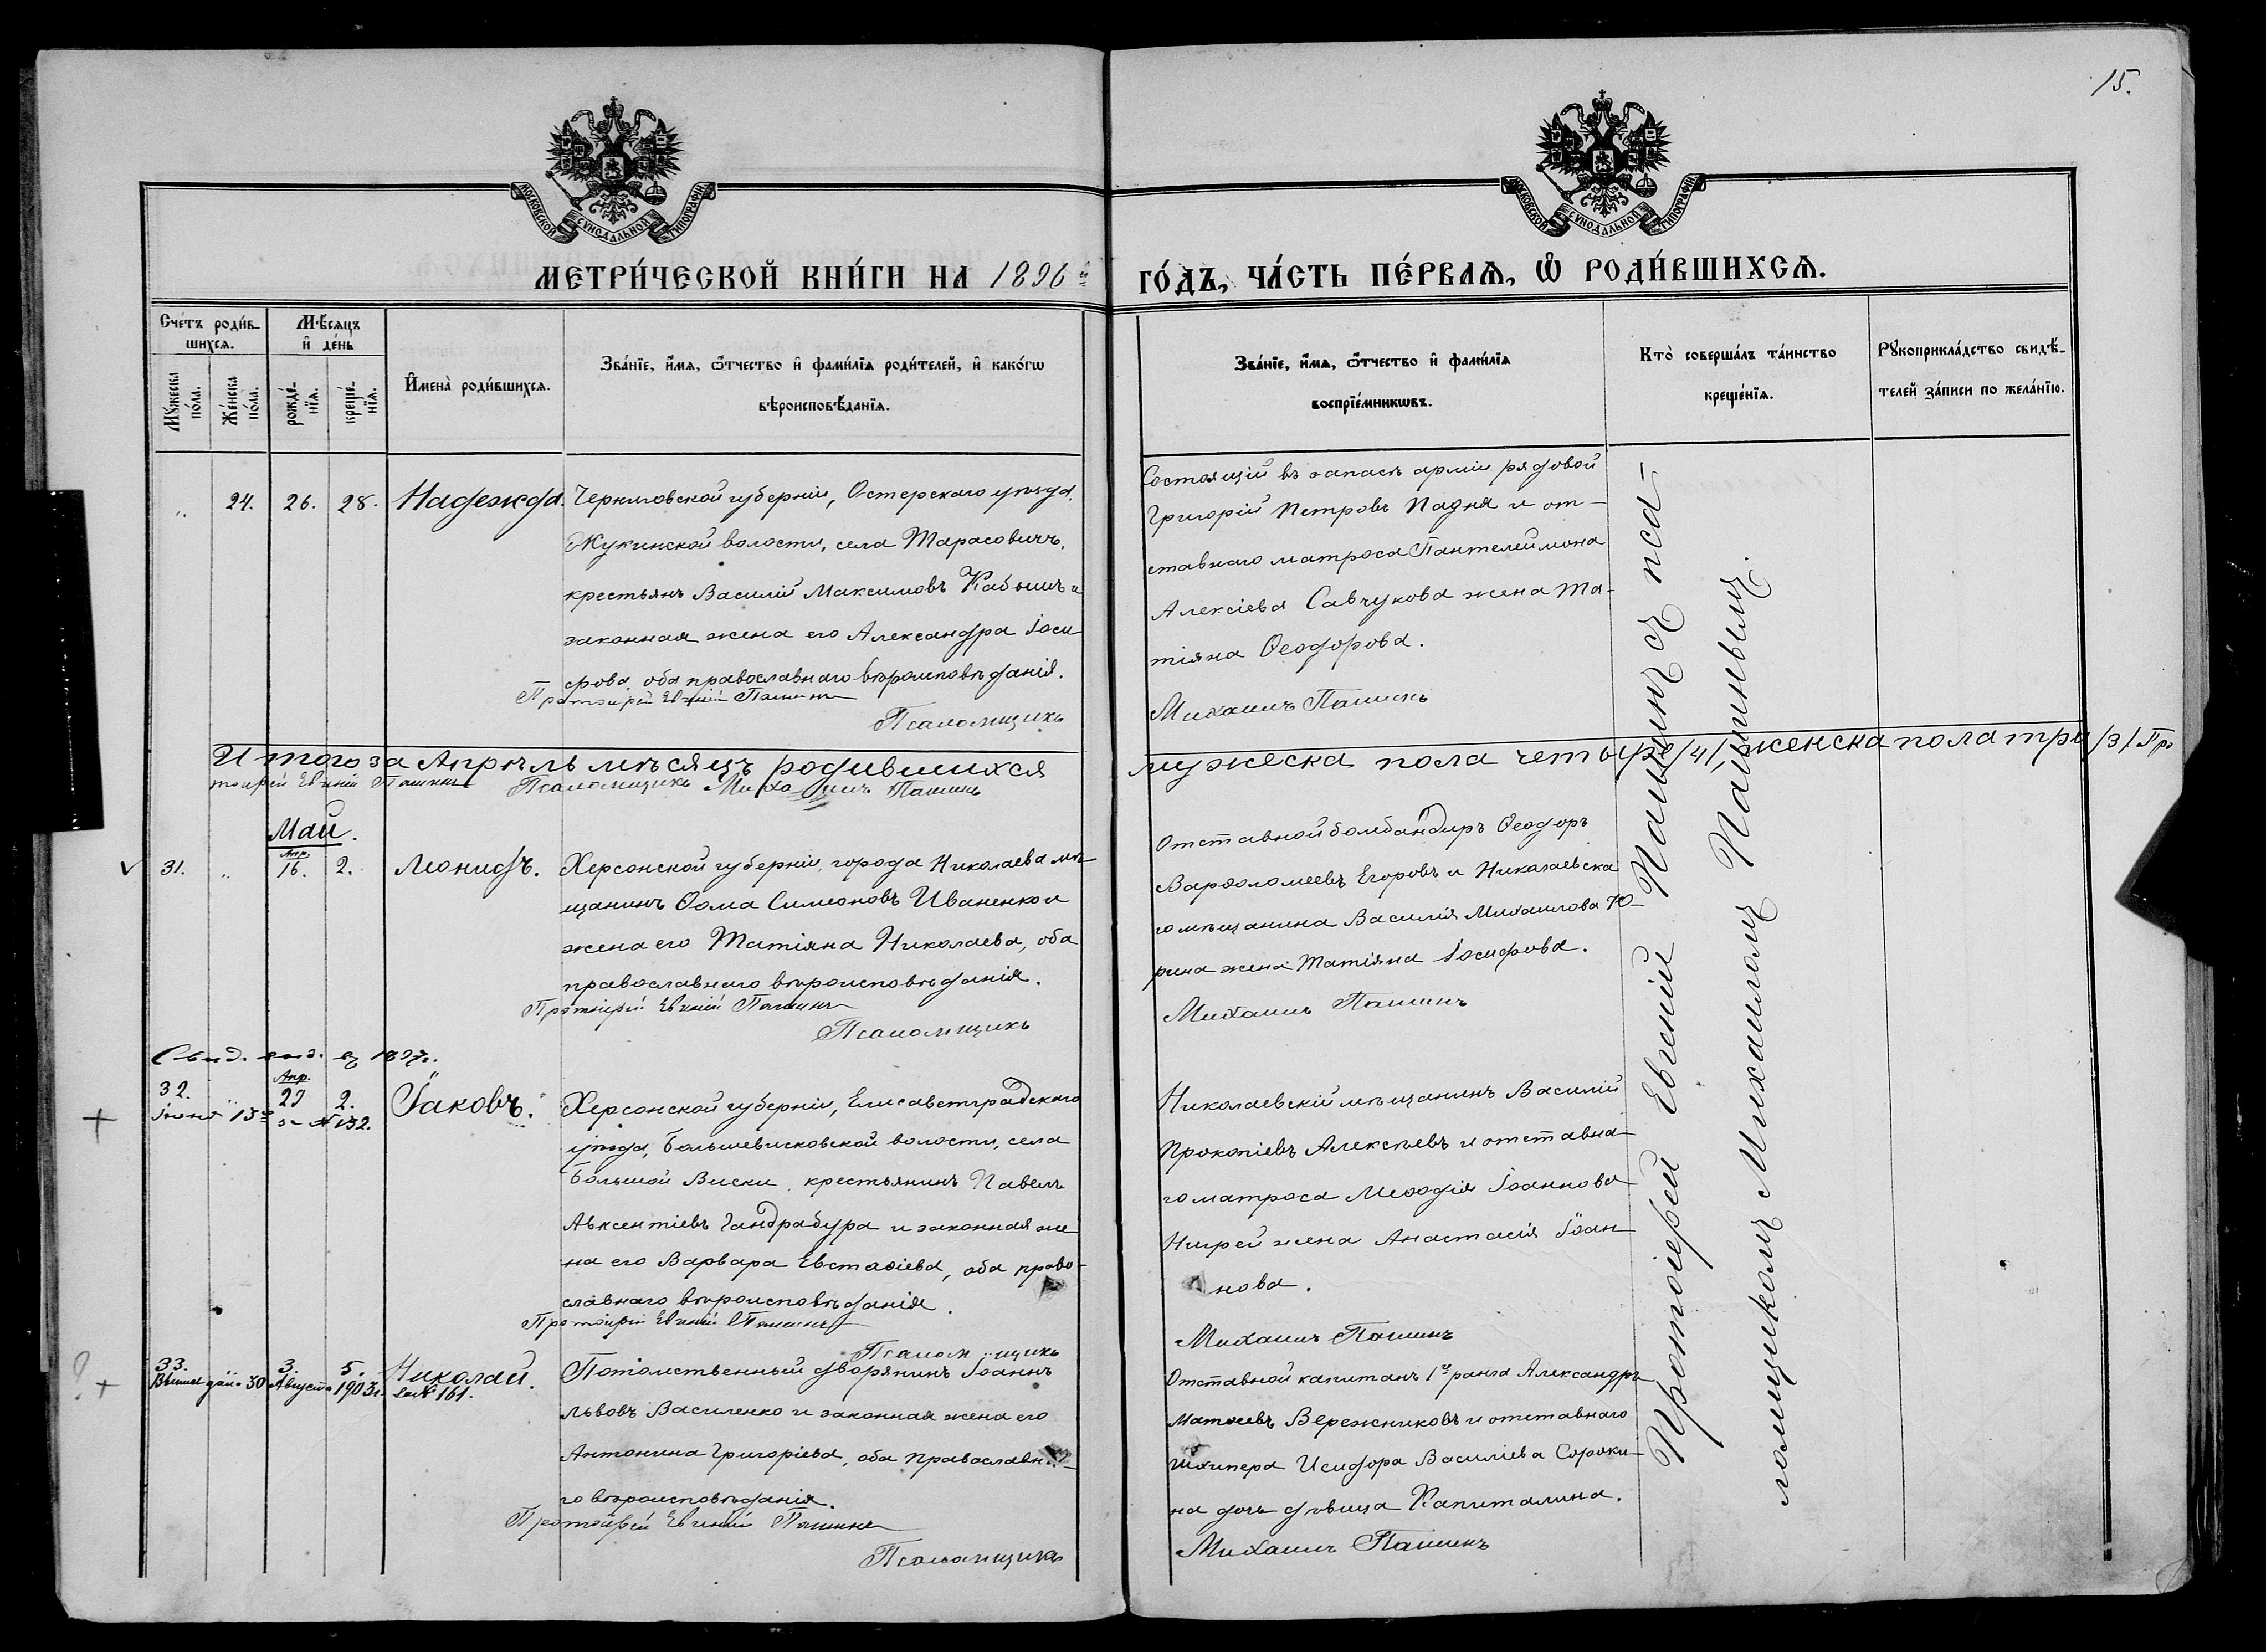 15.
МОСКОВСКОЙ СѴНОДАЛЬНОЙ ТИПОГРАФІИ
МОСКОВСКОЙ СѴНОДАЛЬНОЙ ТИПОГРАФІИ
МЕТРИ́ЧЕСКОЙ КНИ́ГИ НА 1896 й
ГО́ДЪ, ЧА́СТЬ ПЕ́РВАѦ, Ѽ РОДИ́ВШИХСѦ.
Сче́тъ роди́в-
шихсѧ.
Мѣ́сѧцъ
и҆ де́нь
Мꙋ́жеска по́ла.
Же́нска по́ла.
рожде́-
нїѧ.
креще́-
нїѧ.
И҆мена̀ роди́вшихсѧ.
Зва́нїе, и҆́мѧ, ѻ҆́тчество и҆ фами́лїѧ роди́телей, и҆ како́гѡ
вѣроисповѣ́данїѧ.
Зва́нїе, и҆́мѧ, ѻ҆́тчество и҆ фами́лїѧ
воспрїе́мникѡвъ.
Кто̀ соверша́лъ та́инство
креще́нїѧ.
Рꙋкоприкла́дство свидѣ́-
телей за́писи по жела́нїю.
„ 24. 26. 28. Надежда.
Черниговской губерніи, Остерскаго уѣзда,
Жукинской волости, села Тарасовичъ,
крестьянъ Василій Максимовъ Кабышъ и
законная жена его Александра Іоси
фова, оба православнаго вѣроисповѣданія.
Протоіерей Евгеній Пашинъ
Псаломщикъ
Состоящій въ запасѣ арміи рядовой
Григорій Петровъ Падня и от-
ставнаго матроса Пантелеймона
Алексіева Савчукова жена Та-
тіяна Ѳеодорова.
Михаилъ Пашинъ
Итого за Апрѣль мѣсяцъ родившихся
мужеска пола четыре /4/, женска пола три /3/. Про
тоіерей Евгеній Пашинъ Псаломщикъ Михаилъ Пашинъ
Май.
31. „ Апр. 16. 2. Леонидъ.
Херсонской губерніи, города Николаева мѣ
щанинъ Ѳома Симеоновъ Иваненко и
жена его Татіяна Николаева, оба
православнаго вѣроисповѣданія.
Протоіерей Евгеній Пашинъ
Псаломщикъ
Отставной бомбандиръ Ѳеодоръ
Варѳоломеевъ Егоровъ и Николаевска
го мѣщанина Василія Михаилова Ю-
рина жена Татіяна Іосифова.
Михаилъ Пашинъ
Свид. выд. въ 1897г.
32. „ Апр. 29 2. Іаковъ.
Іюня 13го за № 152.
Херсонской губерніи, Елисаветградскаго
уѣзда, Большевисковской волости, села
Большой Виски, крестьянинъ Павелъ
Авксентіевъ Гандрабура и законная же
на его Варвара Евстаѳіева, оба право-
славнаго вѣроисповѣданія.
Протоіерей Евгеній Пашинъ
Псаломщикъ
Николаевскій мѣщанинъ Василій
Прокопіевъ Алексѣевъ и отставна-
го матроса Меѳодія Іоаннова
жена Анастасія Іоан
нова.
Михаилъ Пашинъ
33. 3. 5. Николай.
дано 30 Августа 1903г. за № 161.
Потомственный дворянинъ Іоаннъ
Львовъ Василенко и законная жена его
Антонина Григоріева, оба православна-
го вѣроисповѣданія.
Протоіерей Евгеній Пашинъ
Псаломщикъ
Отставной капитанъ 1го ранга Александръ
Матѳеевъ Вережниковъ и отставнаго
шкипера Исидора Василіева Сороки-
на дочь дѣвица Капиталина.
Михаилъ Пашинъ
Протоіерей Евгеній Пашинъ съ пса-
ломщикомъ Михаиломъ Пашинымъ.